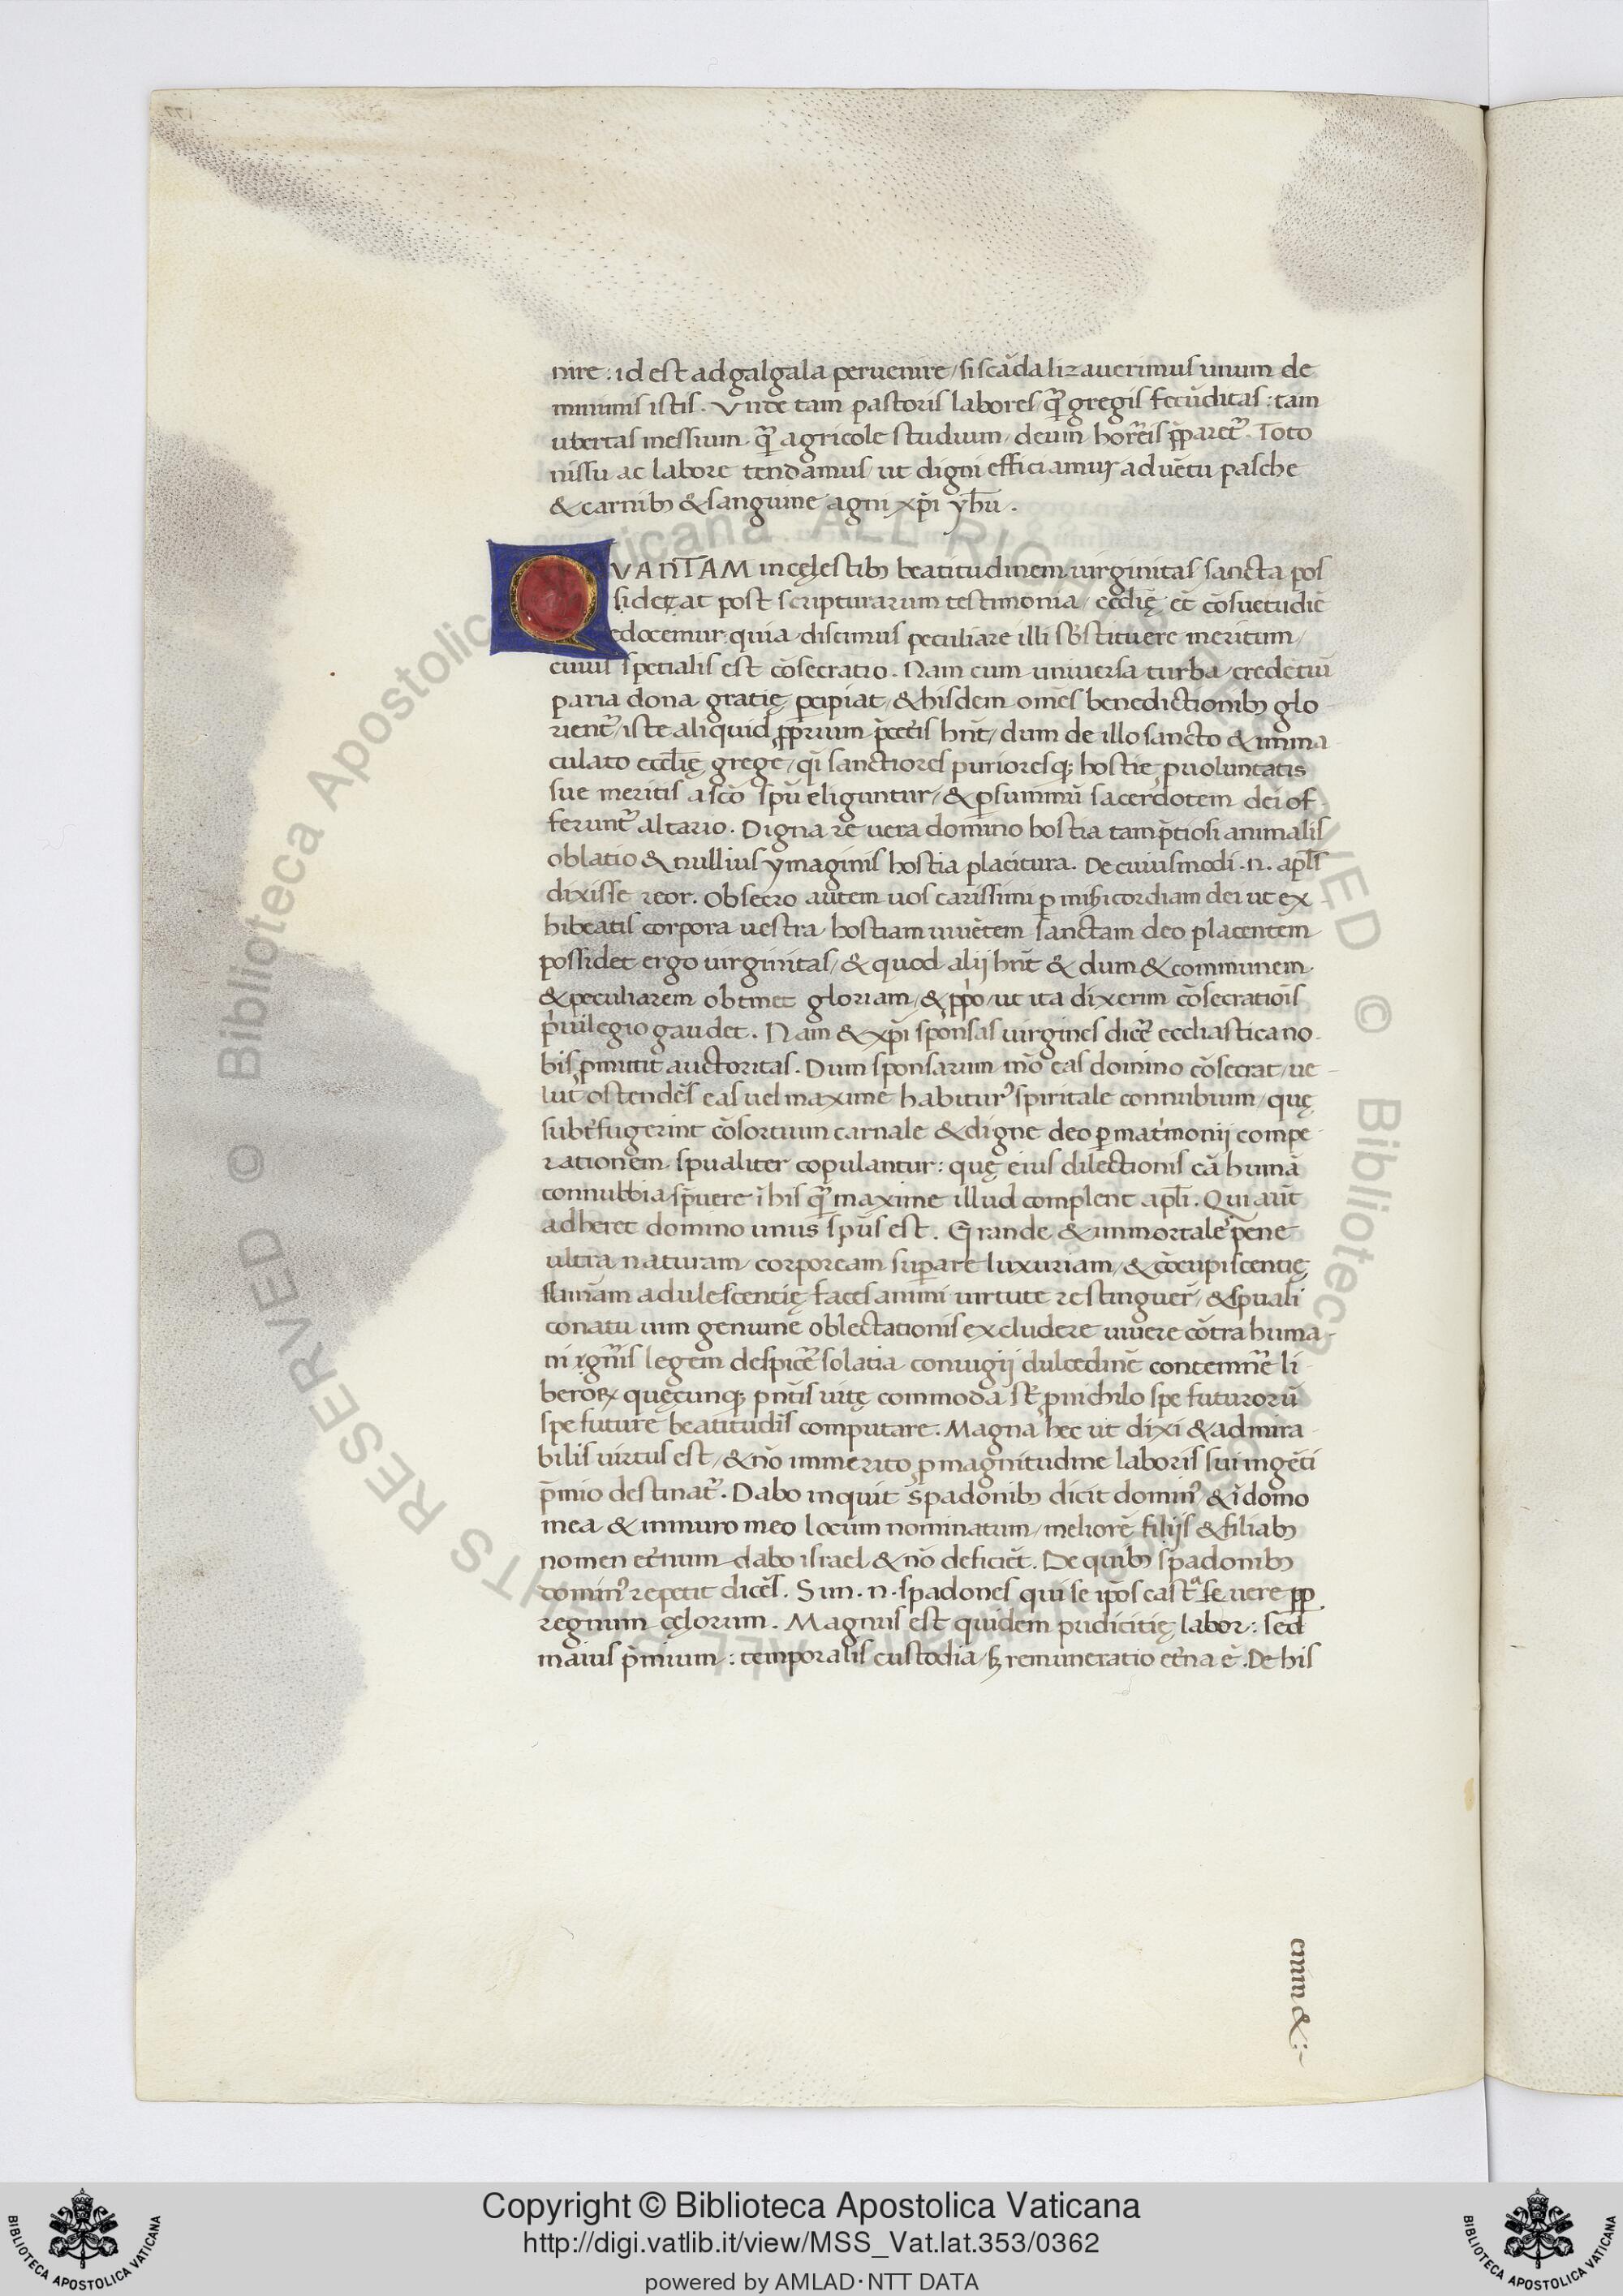 nire: id est ad galgala peruenire / si scādalizauerimus unum de
minimis istis. Vnde tam pastoris labores / q̄ gregis fecūditas: tam
ubertas messium q̄ agricole studium / deum horreis p̄paret᷑. Toto
nissu ac labore tendamus / ut digni efficiamur aduētu pasche
& carnibꝫ & sanguine agni xp̄i yh̄u.
QVANTAM in cęlestibꝫ beatitudinem uirginitas sancta pos
sideat post scripturarum testimonia / eccl̄ię et cōsuetudiē
edocemur quia discimus peculiare illi sb̄stituere meritum /
cuius specialis est cōsecratio. Nam cum uniuersa turba credētiū
paria dona gratię ꝑcipiat / & hisdem om̄es benedictionibꝫ glo
rient᷑ / iste aliquid ꝓprium p̄ ceteris hn̄t / dum de illo sancto & imma
culato eccl̄ię grege / q̄i sanctiores purioresqꝫ hostie ꝓ uoluntatis
sue meritis a scō sp̄u eliguntur / & ꝑ summū sacerdotem dei of
ferunt᷑ altario. Digna re uera domino hostia tam p̄tiosi animalis
oblatio & nullius ymaginis hostia placitura. De cuiusmodi .n. apl̄s
dixisse reor. Obsecro autem uos carissimi ꝑ mis̄icordiam dei ut ex
hibeatis corpora uestra hostiam uiuētem sanctam deo placentem
possidet ergo uirginitas / & quod alij hn̄t & dum & communem
& peculiarem obtinet gloriam / & ꝓp̄o / ut ita dixerim cōsecrationis
p̄uilegio gaudet. Nam & xp̄i sponsas uirgines dicē ecclīastica no
bis ꝑmittit auctoritas. Dum sponsarum mō eas domino cōsecrat / ue
lut ostendēs eas uel maxime habitur᷒ spiritale connubium / quę
subt̄fugerint cōsortium carnale & digne deo ꝑ mat̄monij compe
rationem spualiter copulantur: quę eius dilectionis cā humā
connubbia sp̄uere ī his q̄ maxime illud complent apl̄i. Qui aūt
adheret domino unus sp̄us est. Grande & immortale pene
ultra naturam corpoream suꝑare luxuriam / & cōcupiscentię
flam̄am adulescentię faces animi uirtute restinguer̄ / & sp̄uali
conatu uim genuine oblectationis excludere uiuere cōtra huma
ni gn̄is legem despicē solatia coniugij dulcedinē contemnē̄ li
beroꝝ quęcunqꝫ p̄ntis uitę commoda st̄ ꝓ nichilo spe futurorū
spe future beatitudīs computare. Magna hec ut dixi & admira
bilis uirtus est / & nō immerito ꝓ magnitudine laboris sui ingēti
p̄mio destinat᷑. Dabo inquit spadonibꝫ dicit domin᷒ & ī domo
mea & in muro meo locum nominatum / meliorē filijs & filiabꝫ
nomen et̄num dabo israel & nō deficiēt. De quibꝫ spadonibꝫ
domin᷒ repetit dicēs. Sun .n. spadones qui se ip̄os castᵃ se uere ꝓp
regnum cęlorum. Magnus est quidem pudicitię labor: sed
maius p̄mium: temporalis custodia / sꝫ remuneratio et̄na ē. De his
enim &:~
Copyright © Biblioteca Apostolica Vaticana
http://digi.vatlib.it/view/MSS_Vat.lat.353/0362
powered by AMLAD·NTT DATA
BIBLIOTECA APOSTOLICA VATICANA
BIBLIOTECA APOSTOLICA VATICANA